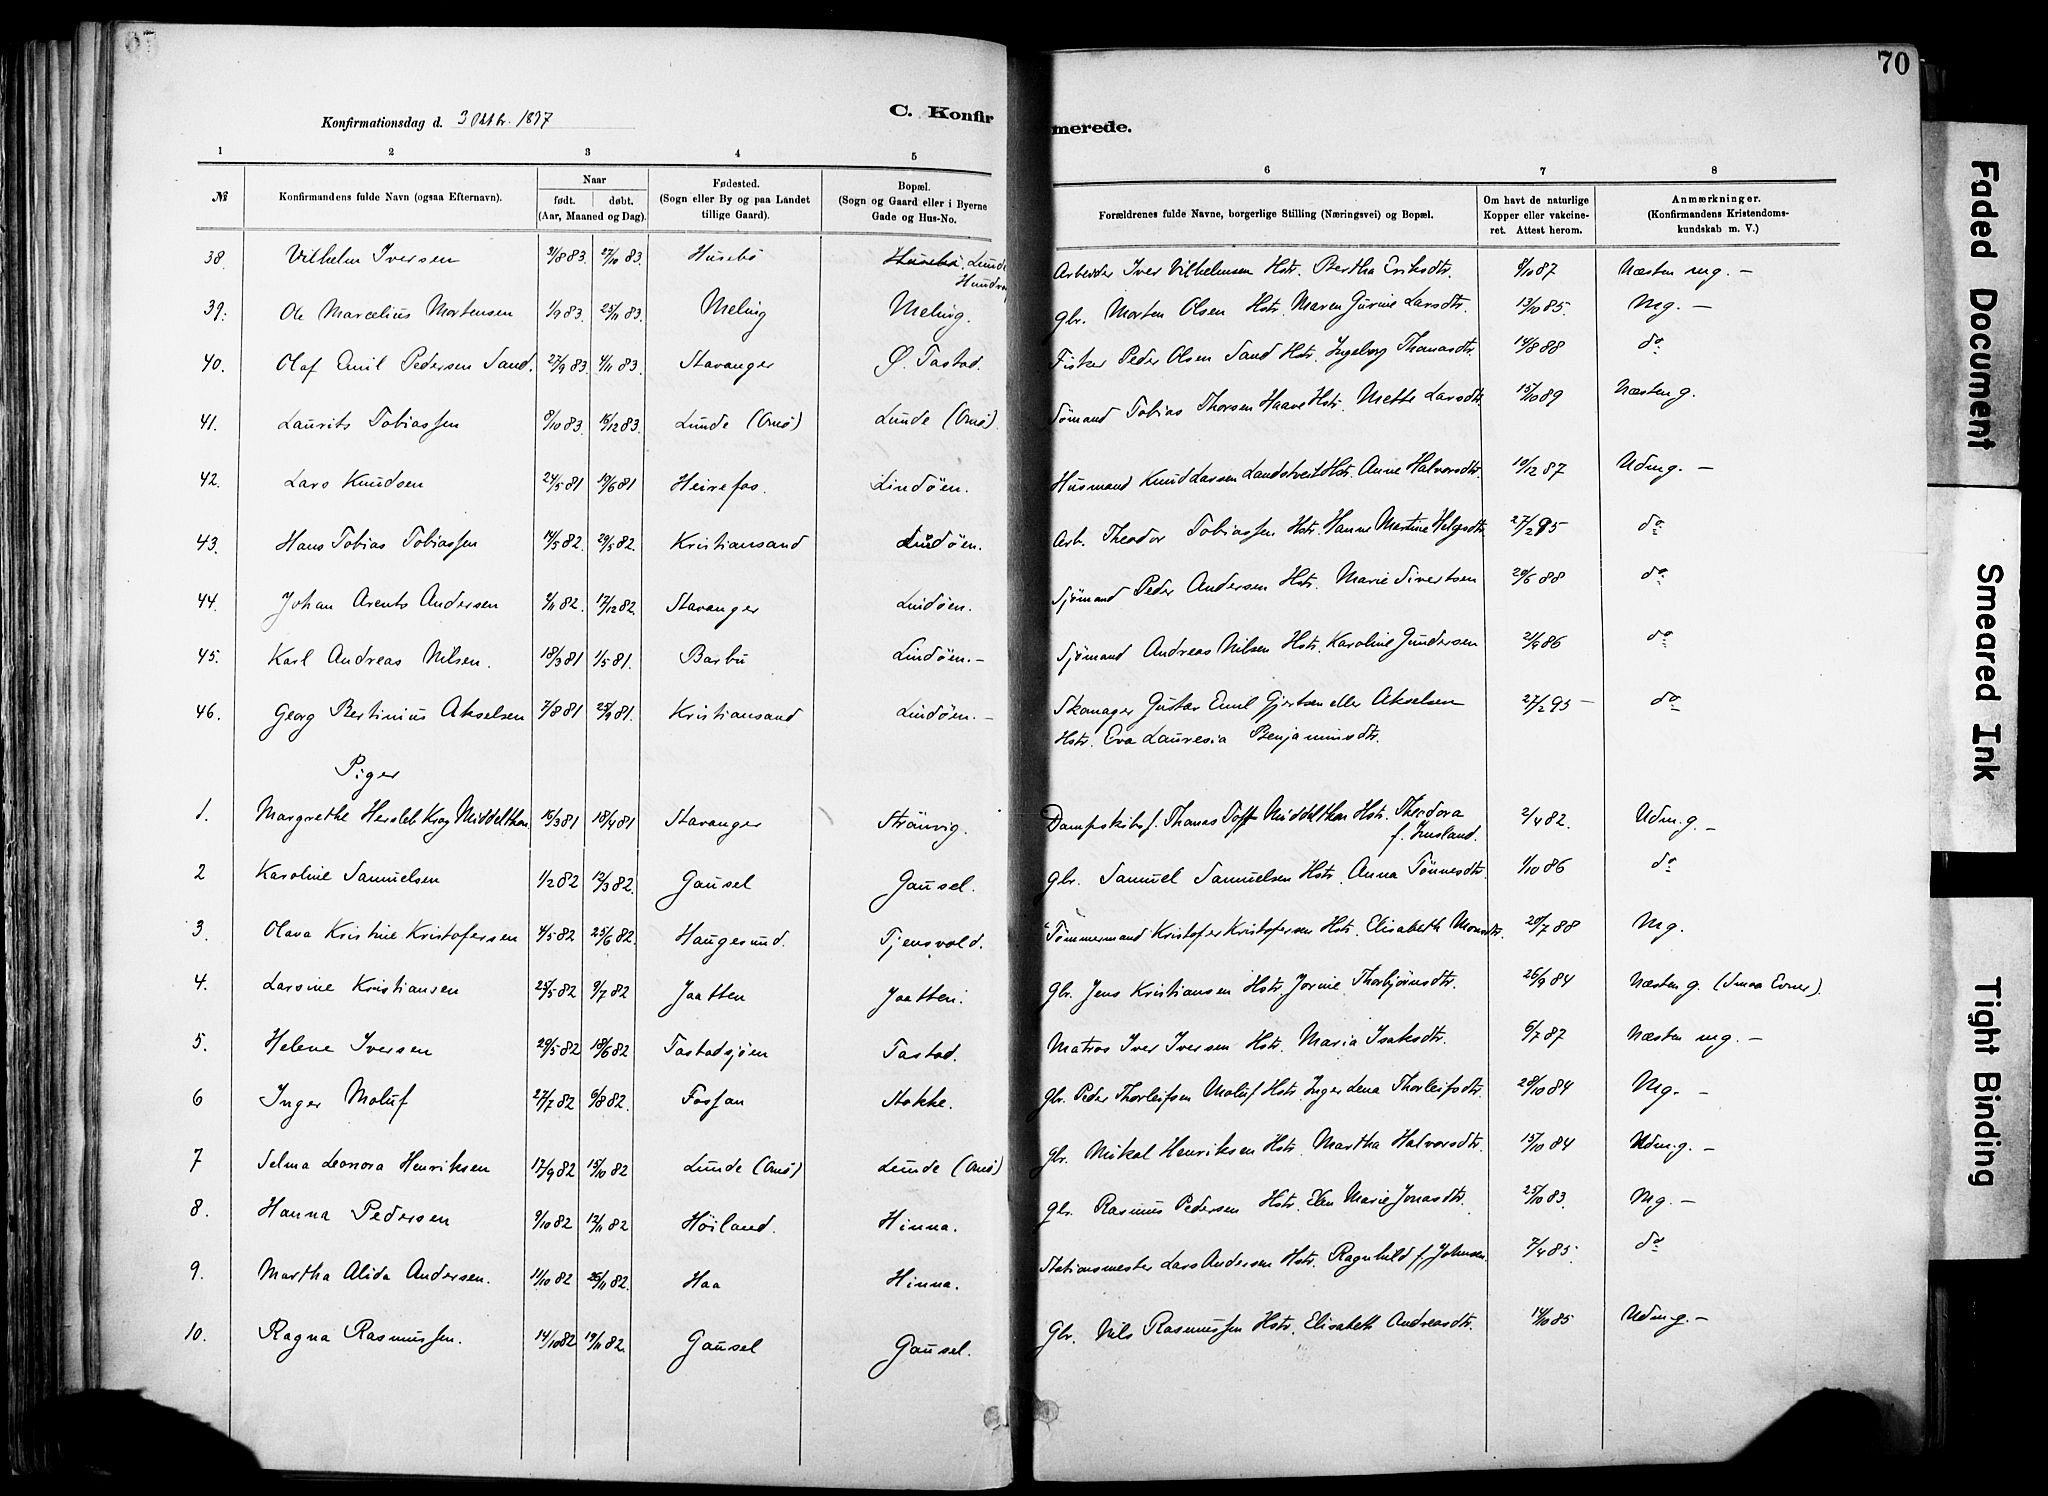 70
Konfirmationsdag d. 3 Oktbr. 1897
C. Konfirmerede.
1 2 3 4 5 6 7 8
№ Konfirmandens fulde Navn (ogsaa Efternavn). Naar født. døbt. (Aar, Maaned og Dag). Fødested. (Sogn eller By og paa Landet tillige Gaard). Bopæl. (Sogn og Gaard eller i Byerne Gade og Hus-No. Forældrenes fulde Navne, borgerlige Stilling (Næringsvei) og Bopæl. Om havt de naturlige Kopper eller vakcineret. Attest herom. Anmærkninger. (Konfirmandens Kristendomskundskab m. V.)
38. Vilhelm Iversen 31/8 83. 27/10 83. Husebø Husebø. Lunde Arbeider Iver Vilhelmsen Hstr. Bertha Eriksdtr. 8/10 87 Næsten mg. –
39. Ole Marcelius Mortensen 1/9 83. 25/11 83. Meling Meling. Gbr. Morten Olsen Hstr. Maren Gurine Larsdtr. 13/10 85. Mg. –
40. Olaf Emil Pedersen Sand. 27/9 83. 4/11 83. Stavanger Ø. Tastad. Fisker Peder Olsen Sand Hstr. Ingeborg Thomasdtr. 14/8 88 do
41. Laurits Tobiassen 8/10 83. 16/12 83. Lunde (Omø) Lunde (Omø). Sømand Tobias Thorsen Haave Hstr. Mette Larsdtr. 15/10 89 Næsten g.
42. Lars Knudsen 24/5 81 19/6 81 Heirefos. Lindøen. Husmand Knud Larsen Landstveit Hstr. Anne Halvorsdtr. 10/12 87 Udmg. –
43. Hans Tobias Tobiassen 14/5 82. 29/5 82. Kristiansand Lindøen. Arb. Theodor Tobiassen Hstr. Hanne Martine Helgesdtr. 27/2 95 do
44. Johan Arents Andersen 9/11 82. 17/12 82 Stavanger Lindøen. Sjømand Peder Andersen Hstr. Marie Sivertsen 20/6 88 do
45. Karl Andreas Nilsen. 18/3 81 1/5 81. Barbu Lindøen. – Sjømand Andreas Nilsen Hstr. Karoline Gundersen 21/4 86 do
46. Georg Bertinius Akselsen 7/8 81 25/9 81. Kristiansand Lindøen. – Skomager Gustav Emil Gjertsen eller Akselsen 27/2 95 – do
Hstr. Eva Lauresia Benjaminsdtr.
Piger
1. Margrethe Hersleb Krag Middelthon 16/3 81 18/4 81 Stavanger Strømvig. Dampskibsf. Thomas Toft Middelthon Hstr. Theodora 2/4 82. Udm.g. –
2 Karoline Samuelsen 1/2 82 12/3 82. Gausel Gausel. Gbr. Samuel Samuelsen Hstr. Anna Tønnesdtr. 1/10 86 do
3. Olava Kristine Kristofersen 4/5 82 25/6 82. Haugesund. Tjensvold. Tømmermand Kristofer Kristofersen Hstr. Elisabeth Monsdtr. 20/7 88 Mg.
4. Larsine Kristiansen 25/5 82 9/7 82 Jaatten Jaatten. Gbr. Jens Kristiansen Hstr. Jorine Thorbjørnsdtr. 26/9 84 Næsten g. (Smaa Evner).
5. Helene Iversen 29/5 82 18/6 82 Tastadsjøen Tastad. Matros Iver Iversen Hstr. Maria Isaksdtr. 6/7 87 Næsten mg. –
6 Inger Moluf 27/7 82 6/8 82. Fossan Stokke. Gbr. Peder Thorleifsen Moluf Hstr. Inger Lena Thorleifsdtr. 28/10 84 Mg. –
7 Selma Leonora Henriksen 17/9 82 15/10 82 Lunde (Omø) Lunde (Omø) Gbr. Mikal Henriksen Hstr. Martha Halvorsdtr. 15/10 84 Udm.g. –
8. Hanna Pedersen 9/10 82 12/11 82 Høiland. Hinna. Gbr. Rasmus Pedersen Hstr. Elen Marie Jonasdtr. 25/10 83. Mg. –
9. Martha Alida Andersen. 11/10 82 26/11 82. Haa Hinna. Stationsmester Lars Andersen Hstr. Ragnhild f. Johnsen. 7/4 85. do
10. Ragna Rasmussen. 14/10 82 19/11 82. Gausel Gausel. Gbr. Nils Rasmussen Hstr. Elisabeth Andreasdtr. 14/10 85 Udm g. –
Faded Document
Smeared Ink
Tight Binding